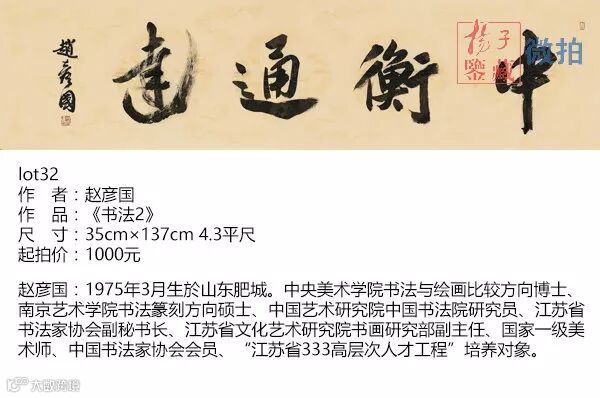 中衡通達
趙彥國
杨子
鑒藏
微拍
lot32
作 者：赵彦国
作 品：《书法2》
尺 寸：35cm×137cm 4.3平尺
起拍价：1000元
赵彦国：1975年3月生於山东肥城。中央美术学院书法与绘画比较方向博士、
南京艺术学院书法篆刻方向硕士、中国艺术研究院中国书法院研究员、江苏省
书法家协会副秘书长、江苏省文化艺术研究院书画研究部副主任、国家一级美
术师、中国书法家协会会员、“江苏省333高层次人才工程”培养对象。
大数跨境